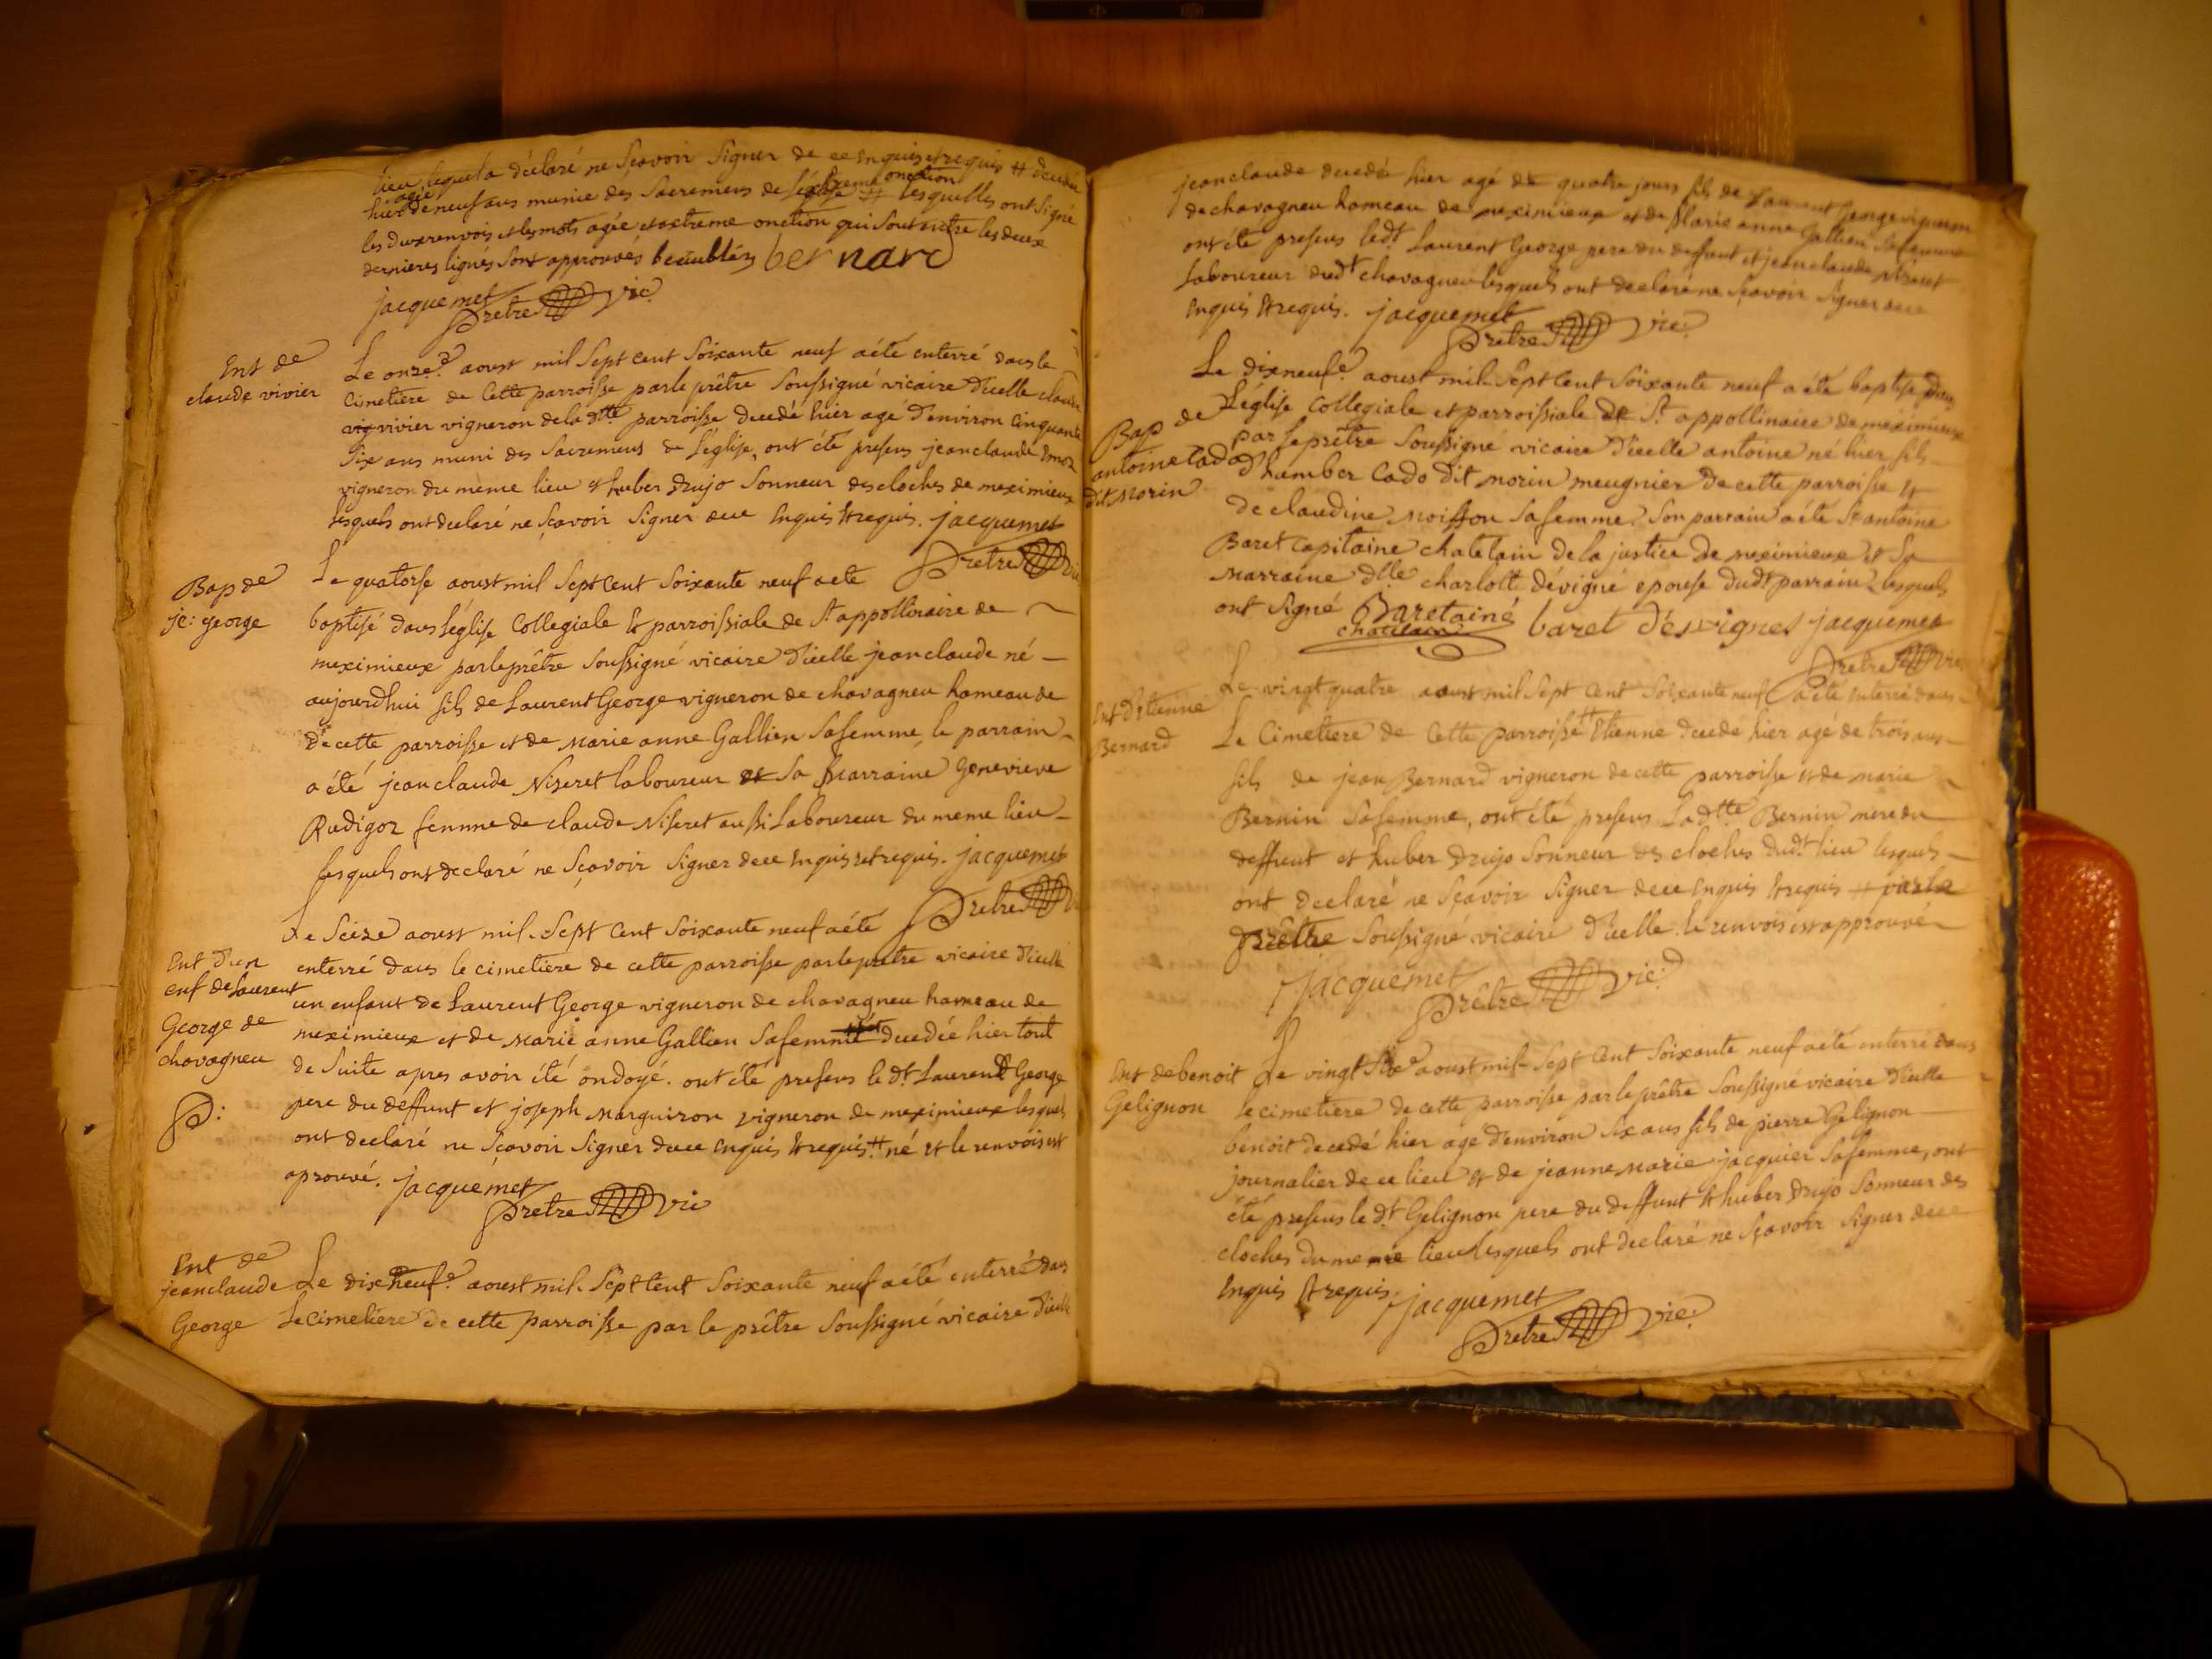 lieu, lequel a déclaré ne sçavoir signer de ce enquis et requis # decedée
hier agée de neuf ans munie des sacremens de l'église extreme onction # lesquelles ont signé
les deux renvois et les mots agée et extreme onction qui sont entre les deux
dernieres lignes sont approuvés bernard
jacquemet
prêtre vic.
Ent de
claude vivier
Le onze.e aoust mil sept cent soixante neuf a été enterré dans le
cimetiere de cette parroisse par le prêtre soussigné vicaire d'icelle claude
vivier vigneron de la dtte parroisse decedé hier agé d'environ cinquante
six ans muni des sacremens de l'église, ont été presens jeanclaude
vigneron du même lieu et huber drujo sonneur des cloches de meximieux
lesquels ont declaré ne sçavoir signer de ce enquis et requis. jacquemet
prêtre vic
Bap de
je: george
Le quatorse aoust mil sept cent soixante neuf a eté
baptisé dans l'église collegiale et parroissiale de St appollinaire de
meximieux par le prêtre soussigné vicaire d'icelle jeanclaude né
aujourdhui fils de Laurent George vigneron de chavagneu hameau de
de cette parroisse et de marie anne Gallien sa femme, le parrain
a été jeanclaude Niseret laboureur et la marraine genevieve
Rudigoz femme de claude Niseret aussi laboureur du meme lieu
lesquels ont declaré ne sçavoir signer de ce enquis et requis. jacquemet
prêtre
Ent d'un
enf de laurent
George de
chavagneu
Le seize aoust mil sept cent soixante neuf a été
enterré dans le cimetiere de cette parroisse par le prêtre vicaire d'icelle
un enfant de Laurent George vigneron de chavagneu hameau de
meximieux et de marie anne Gallien sa femme decedée hier tout
de suite apres avoir été ondoyé. ont été presens le dt Laurent George
pere du deffunt et joseph marguiron vigneron de meximieux lesquels
ont declaré ne sçavoir signer de ce enquis et requis. # né et le renvois est
aprouvé. jacquemet
prêtre vic
Ent de
jeanclaude
George
Le dix neuf.e aoust mil sept cent soixante neuf a été enterré dans
le cimetiere de cette parroisse par le prêtre soussigné vicaire d'icelle
jeanclaude decedé hier agé de quatre jours fils de Laurent George vigneron
de chavagneu hameau de meximieux et de Marie anne Gallien sa femme
ont été presens le dt Laurent George pere du deffunt et jeanclaude Niseret
laboureur dudt chavagneu lesquels ont declaré ne sçavoir signer de ce
enquis et requis. jacquemet
prêtre vic.
Bap de
antoine Cado
dit morin
Le dixneuf.e aoust mil sept cent soixante neuf a été baptisé dans
l'église collegiale et parroissiale de St appollinaire de meximieux
par le prêtre soussigné vicaire d'icelle antoine né hier fils
d'humber Cado dit morin meugnier de cette parroisse et
de claudine moisson sa femme. son parrain a été Sr antoine
Baret capitaine chatelain de la justice de meximieux et la
marraine dlle charlotte dévigne epouse dudt parrain, lesquels
ont signé Baret ainé
chatelain baret désvignes jacquemet
prêtre vic
Ent d'étienne
Bernard
Le vingt quatre aoust mil sept cent soixante neuf a été enterré dans
le cimetiere de cette parroisse # étienne decedé hier agé de trois ans
fils de jean Bernard vigneron de cette parroisse et de marie
Bernin sa femme, ont été presens ladtte Bernin mere du
deffunt et huber drujo sonneur des cloches dudt lieu lesquels
ont declaré ne sçavoir signer de ce enquis et requis # par le
prêtre soussigné vicaire d'icelle. le renvois est approuvé
jacquemet
prêtre vic.
Ent de benoit
Gelignon
Le vingt six.e aoust mil sept cent soixante neuf a été enterré dans
le cimetiere de cette parroisse par le prêtre soussigné vicaire d'icelle
benoit decedé hier agé d'environ six ans fils de pierre Gelignon
journalier de ce lieu et de jeanne marie jacquier sa femme, ont
été presens le dt Gelignon pere du deffunt et huber drujo sonneur des
cloches du meme lieu lesquels ont declaré ne sçavoir signer de ce
enquis et requis. jacquemet
prêtre vic.